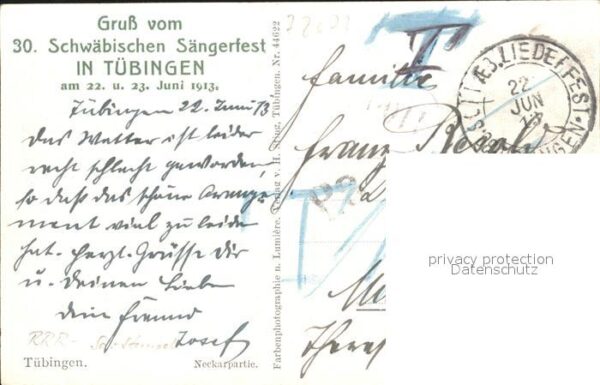 Gruß vom
30. Schwäbischen Sängerfest
IN TÜBINGEN
am 22. u. 23. Juni 1913.
Tübingen 22. Juni 13
Das Wetter ist leider
recht schlecht geworden,
so daß das schöne Arrange
ment viel zu leide
hat. Herzl. Grüsse Dir
u. Deinen Lieben
dein Freund
Josef
RRR-
Tübingen.
Neckarpartie.
Farbenphotographie n. Lumière. Verlag v. H. Sting, Tübingen. Nr. 44622
Familie
Franz
LIEDERFEST
22
JUN
13
privacy protection
Datenschutz